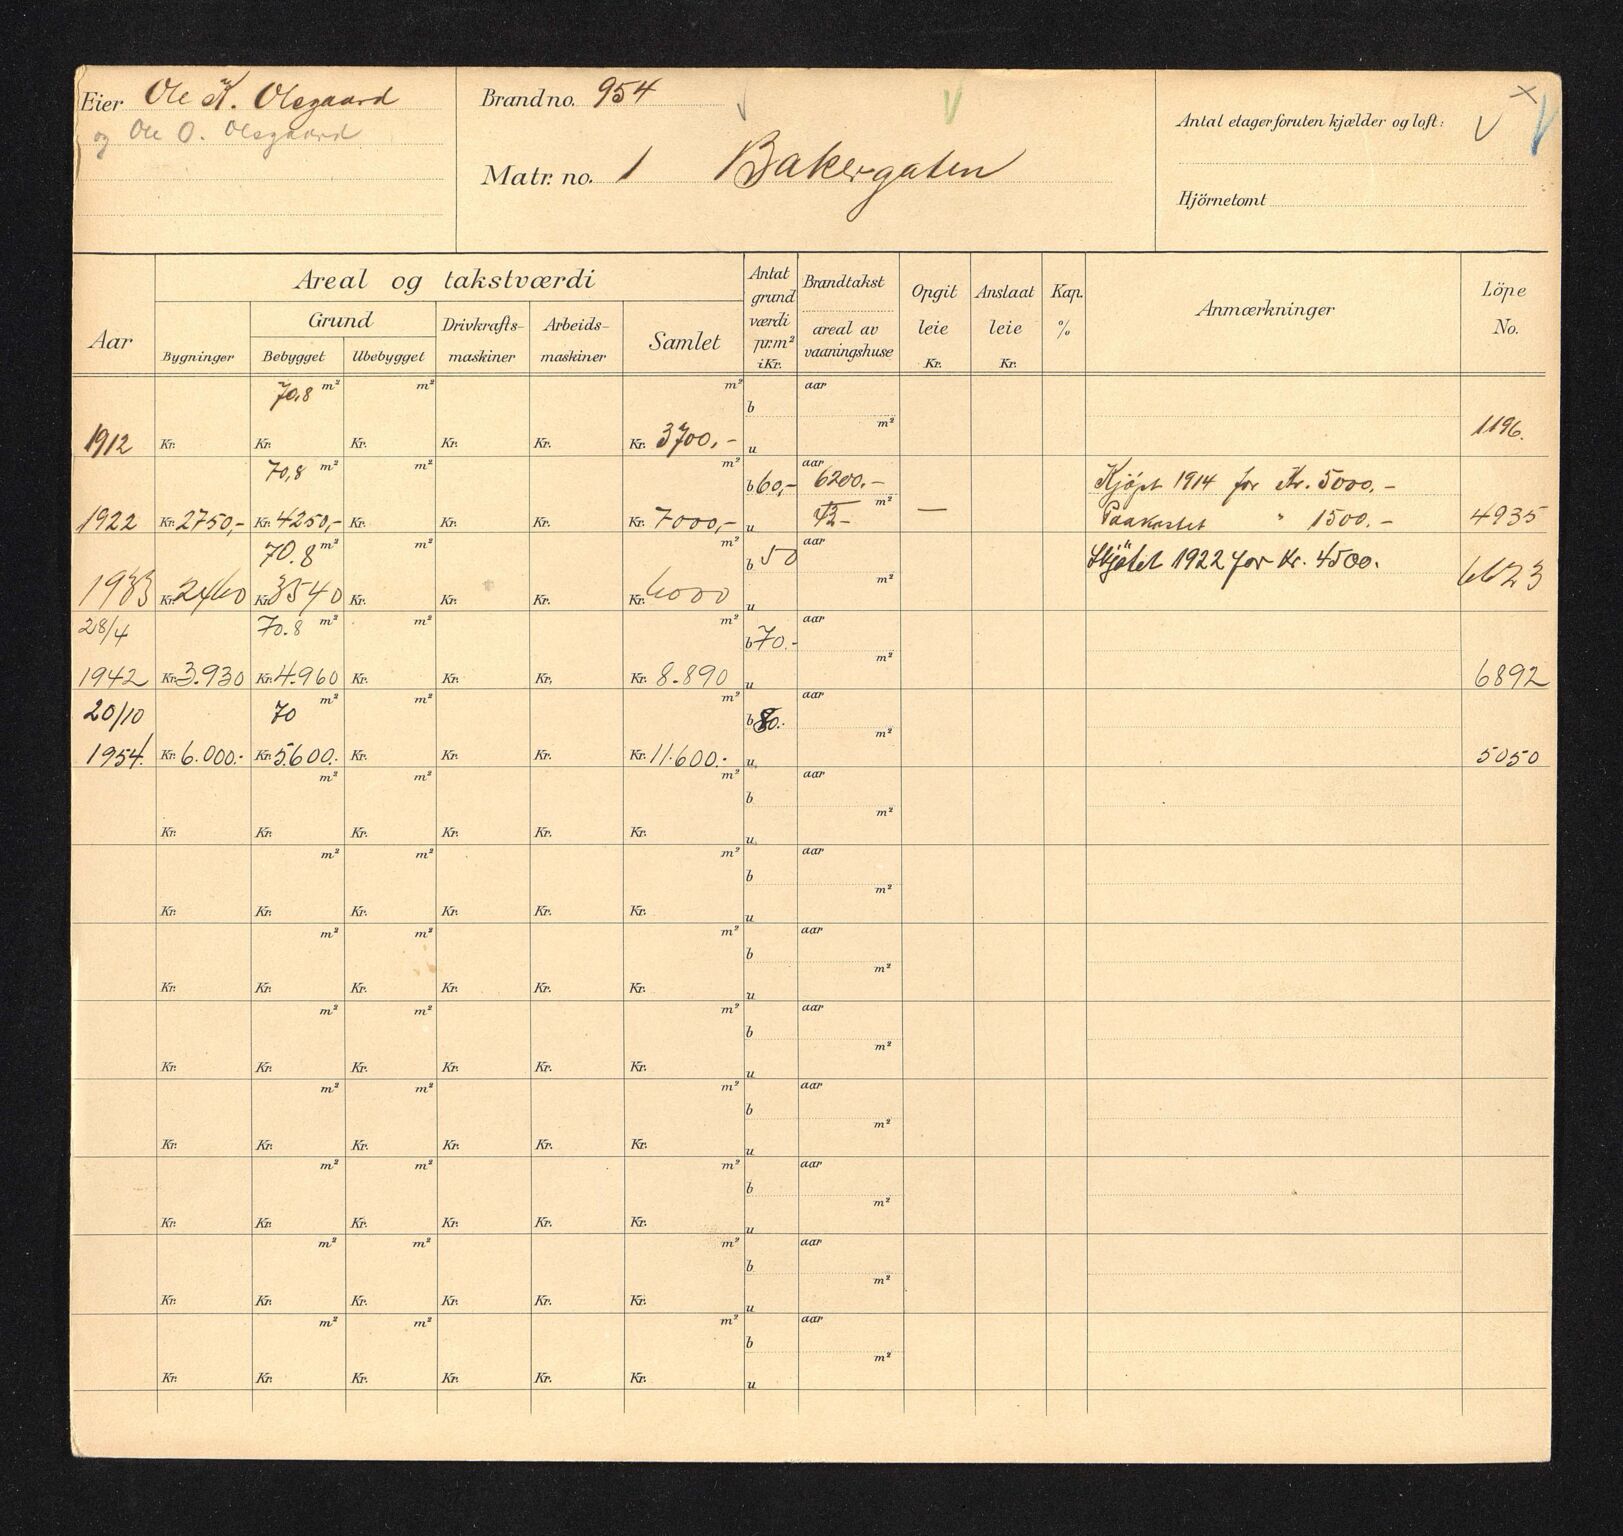 Eier Ole K. Olsgaard
og Ole O. Olsgaard
Brandno. 954
Matr. no. 1 Bakergaten
Antal etager foruten kjælder og loft:
Hjörnetomt
Aar
Areal og takstværdi
Bygninger
Grund
Bebygget
Ubebygget
Drivkrafts-
maskiner
Arbeids-
maskiner
Samlet
Antat
grund
værdi
pr.m²
i Kr.
Brandtakst
areal av
vaaningshuse
Opgit
leie
Kr.
Anslaat
leie
Kr.
Kap.
%
Anmærkninger
Löpe
No.
70,8 m² m² m² b aar
1912 Kr. Kr. Kr. Kr. Kr. Kr. 3700,- u m² 1196.
70,8 m² m² m² b 60,- aar 6200.- Kjøpt 1914 for Kr. 5000.-
1922 Kr. 2750,- Kr. 4250,- Kr. Kr. Kr. Kr. 7000,- u m² — Paakostet " 1500.- 4935
70.8 m² m² b 50 aar Skjøtet 1922 for Kr. 4500.
1933 Kr. 2460 Kr. 3540 Kr. Kr. Kr. Kr. 6000 u m² 6623
28/4 70.8 m² m² m² b 70.- aar
1942 Kr. 3.930 Kr. 4.960 Kr. Kr. Kr. Kr. 8.890 u m² 6892
20/10 70 m² m² m² b 80.- aar
1954. Kr. 6.000.- Kr. 5.600.- Kr. Kr. Kr. Kr. 11.600.- u m² 5050
m² m² m² b aar
Kr. Kr. Kr. Kr. Kr. Kr. u m²
m² m² m² b aar
Kr. Kr. Kr. Kr. Kr. Kr. u m²
m² m² m² b aar
Kr. Kr. Kr. Kr. Kr. Kr. u m²
m² m² m² b aar
Kr. Kr. Kr. Kr. Kr. Kr. u m²
m² m² m² b aar
Kr. Kr. Kr. Kr. Kr. Kr. u m²
m² m² m² b aar
Kr. Kr. Kr. Kr. Kr. Kr. u m²
m² m² m² b aar
Kr. Kr. Kr. Kr. Kr. Kr. u m²
m² m² m² b aar
Kr. Kr. Kr. Kr. Kr. Kr. u m²